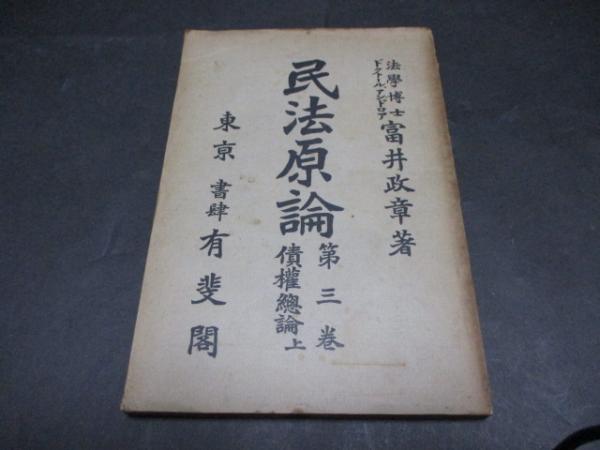 法學博士
ドクトール、アンドロア
富井政章著
民法原論
第三卷
債權總論上
東京 書肆 有斐閣